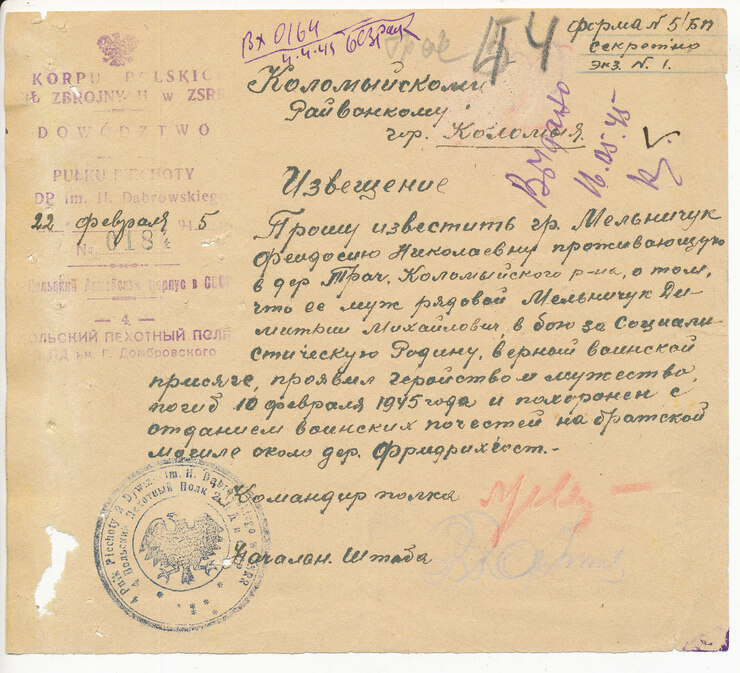 Вх 0164
4.4.45
44
форма N 5/БП
секретно
экз. N. 1.
KORPUS POLSKICH
SIŁ ZBROJNYCH w ZSRR
DOWÓDZTWO
PUŁKU PIECHOTY
DP im. H. Dąbrowskiego
22 февраля 1945
№ 0184
Польский Армейский корпус в СССР
— 4 —
ПОЛЬСКИЙ ПЕХОТНЫЙ ПОЛК
ПД им. Г. Домбровского
Коломыйскому
Райвоенкому
гор. Коломыя
16.05.45
Извещение
Прошу известить гр. Мельничук
Феодосию Николаевну проживающую
в дер Трач, Коломыйского р-на, о том,
что ее муж рядовой Мельничук Ди-
митрий Михайлович, в бою за Социали-
стическую Родину, верный воинской
присяге, проявил геройством мужество
погиб 10 февраля 1945 года и похоронен с
отданием воинских почестей на братской
могиле около дер. Фридрихгост.-
Командир полка
Начальн. Штаба
4 Pułk Piechoty 2 Dywiz. im. H. Dąbrowskiego w ZSRR
4 Польский Пехотный Полк 2